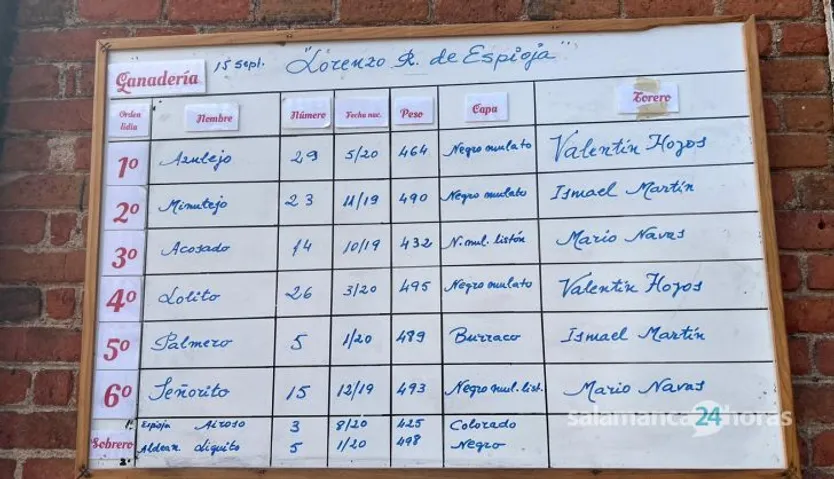 Ganadería 15 sept. "Lorenzo R. de Espioja"
Orden lidia Nombre Número Fecha nac. Peso Capa Torero
1º Azulejo 29 5/20 464 Negro mulato Valentín Hoyos
2º Minutejo 23 11/19 490 Negro mulato Ismael Martín
3º Acosado 14 10/19 432 N. mul. listón Mario Navas
4º Lolito 26 3/20 495 Negro mulato Valentín Hoyos
5º Palmero 5 1/20 489 Burraco Ismael Martín
6º Señorito 15 12/19 493 Negro mul. list. Mario Navas
1º Espioja Airoso 3 8/20 425 Colorado
Sobrero
2º Aldean. Liquito 5 1/20 498 Negro
salamanca24horas